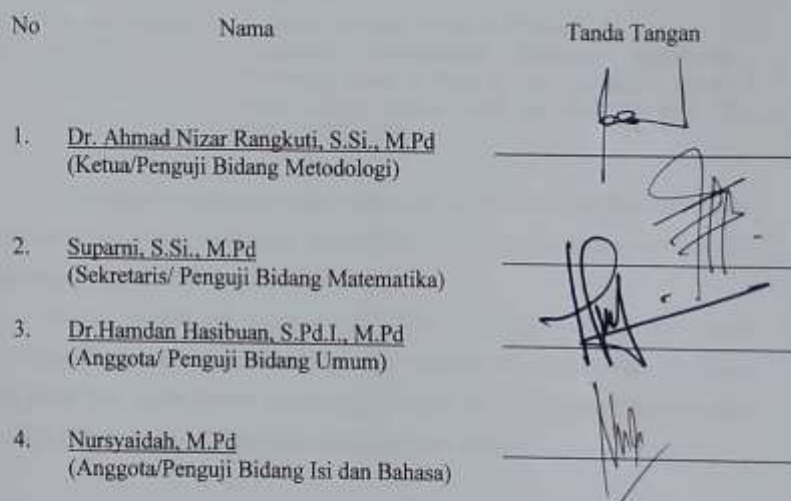 No Nama Tanda Tangan
1. Dr. Ahmad Nizar Rangkuti, S.Si., M.Pd
(Ketua/Penguji Bidang Metodologi)
2. Suparni, S.Si., M.Pd
(Sekretaris/ Penguji Bidang Matematika)
3. Dr.Hamdan Hasibuan, S.Pd.I., M.Pd
(Anggota/ Penguji Bidang Umum)
4. Nursyaidah, M.Pd
(Anggota/Penguji Bidang Isi dan Bahasa)